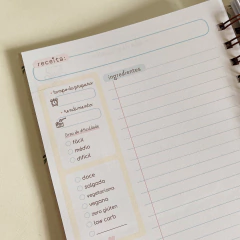 receita:
ingredientes
- tempo de preparo
- rendimento
Grau de dificuldade
fácil
médio
difícil
doce
salgado
vegetariano
vegano
zero glúten
low carb